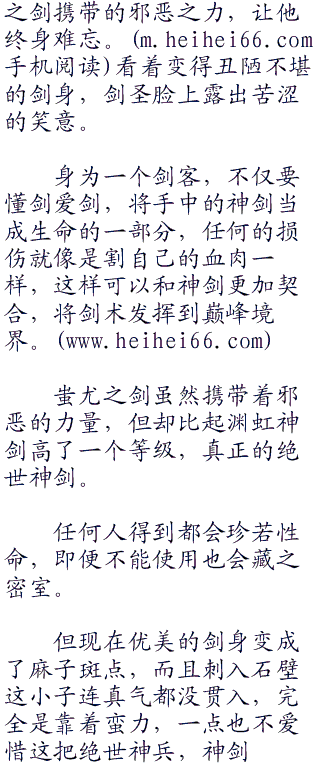 之剑携带的邪恶之力，让他
终身难忘。(m.heihei66.com
手机阅读)看着变得丑陋不堪
的剑身，剑圣脸上露出苦涩
的笑意。
身为一个剑客，不仅要
懂剑爱剑，将手中的神剑当
成生命的一部分，任何的损
伤就像是割自己的血肉一
样，这样可以和神剑更加契
合，将剑术发挥到巅峰境
界。(www.heihei66.com)
蚩尤之剑虽然携带着邪
恶的力量，但却比起渊虹神
剑高了一个等级，真正的绝
世神剑。
任何人得到都会珍若性
命，即便不能使用也会藏之
密室。
但现在优美的剑身变成
了麻子斑点，而且刺入石壁
这小子连真气都没贯入，完
全是靠着蛮力，一点也不爱
惜这把绝世神兵，神剑